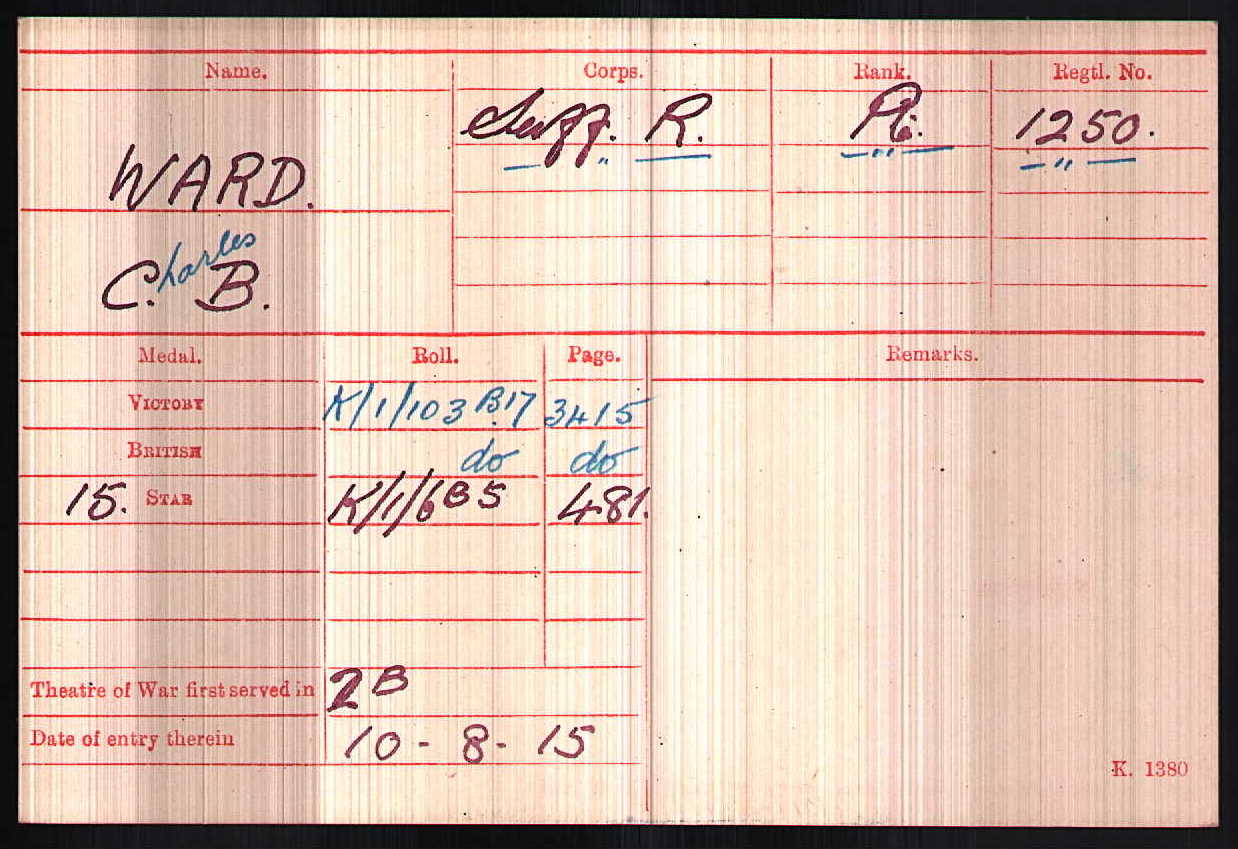 Name. Corps. Rank. Regtl. No.
WARD. Suff. R. Pte. 1250.
— " — — " — — " —
Charles
C. B.
Medal. Roll. Page. Remarks.
VICTORY K/1/103 B17 3415
BRITISH do do
15. STAR K/1/6 B5 481.
Theatre of War first served in 2B
Date of entry therein 10 - 8 - 15
K. 1380